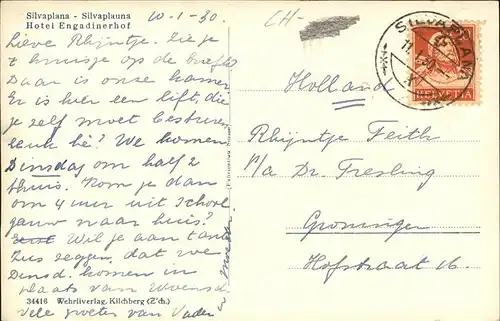 Silvaplana - Silvaplauna
Hotel Engadinerhof
10-1-30.
Lieve Rhijntje. Zie je
't kruisje op de briefk
Daar is onze kamer
Er is hier een lift, die
je zelf moet besturen
leuk hè? We komen
Dinsdag om half 2
thuis. Kom je dan
om 4 uur uit school
gauw naar huis?
Wil je aan tante
Zus zeggen, dat we
Dinsd. komen in
plaats van Woensd.
34416 Wehrliverlag, Kilchberg (Z'ch.)
vele groeten van Vader
en moeder
CH-
SILVAPLANA
HELVETIA
Holland
Rhijntje Feith
p/a Dr. Tresling
Groningen
Hofstraat 16.